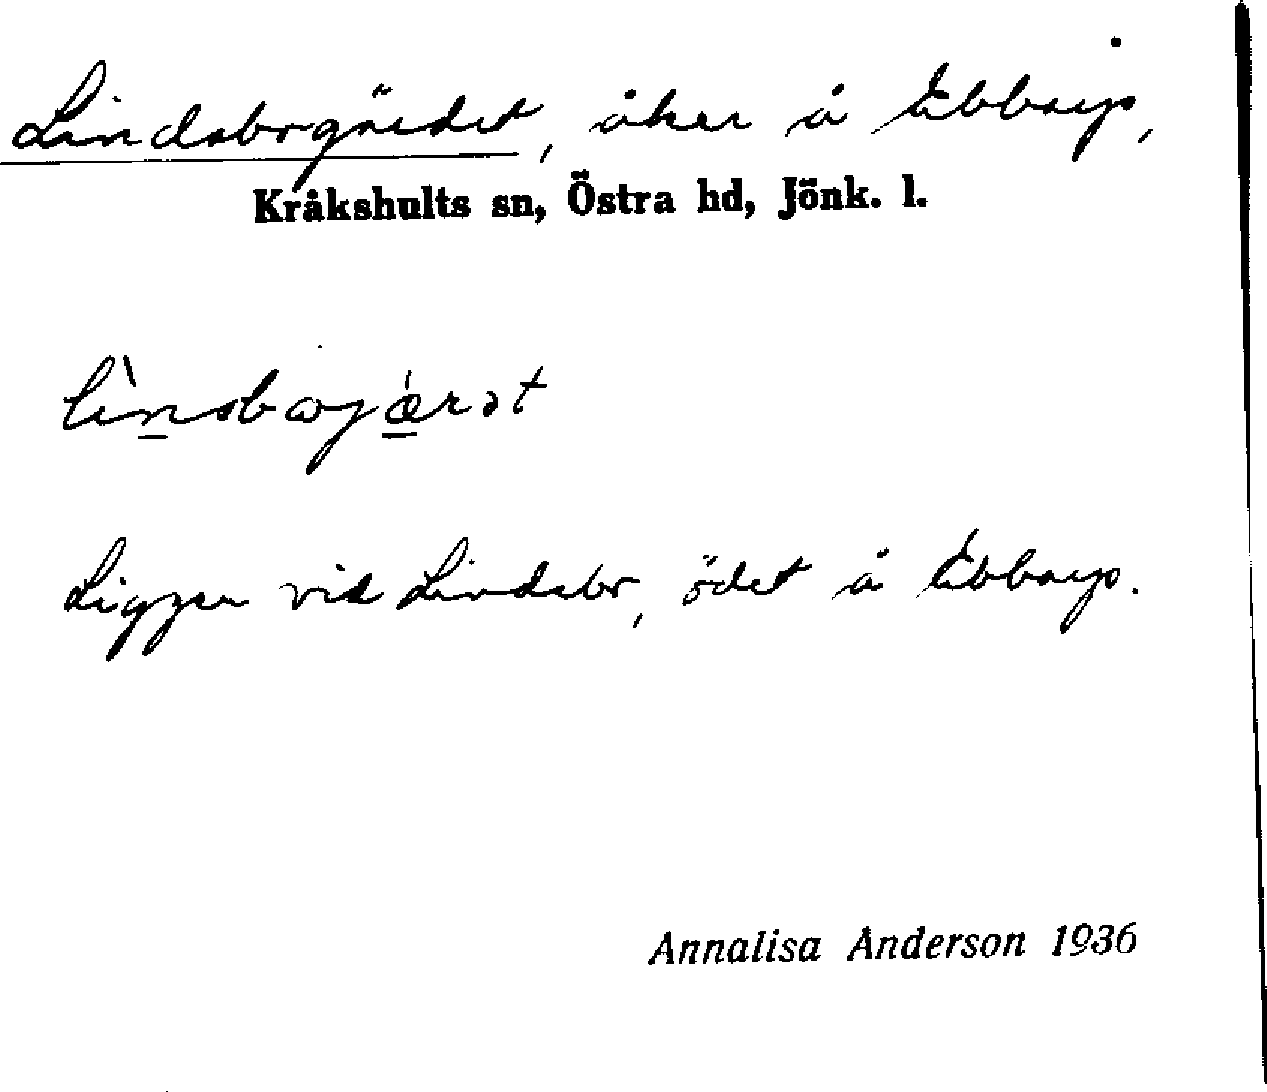 Lindsbrogärdet, åker å Ebbarp,
Kråkshults sn, Östra hd, Jönk. l.
Ligger vid Lindsbro, ödet å Ebbarp.
Annalisa Anderson 1936